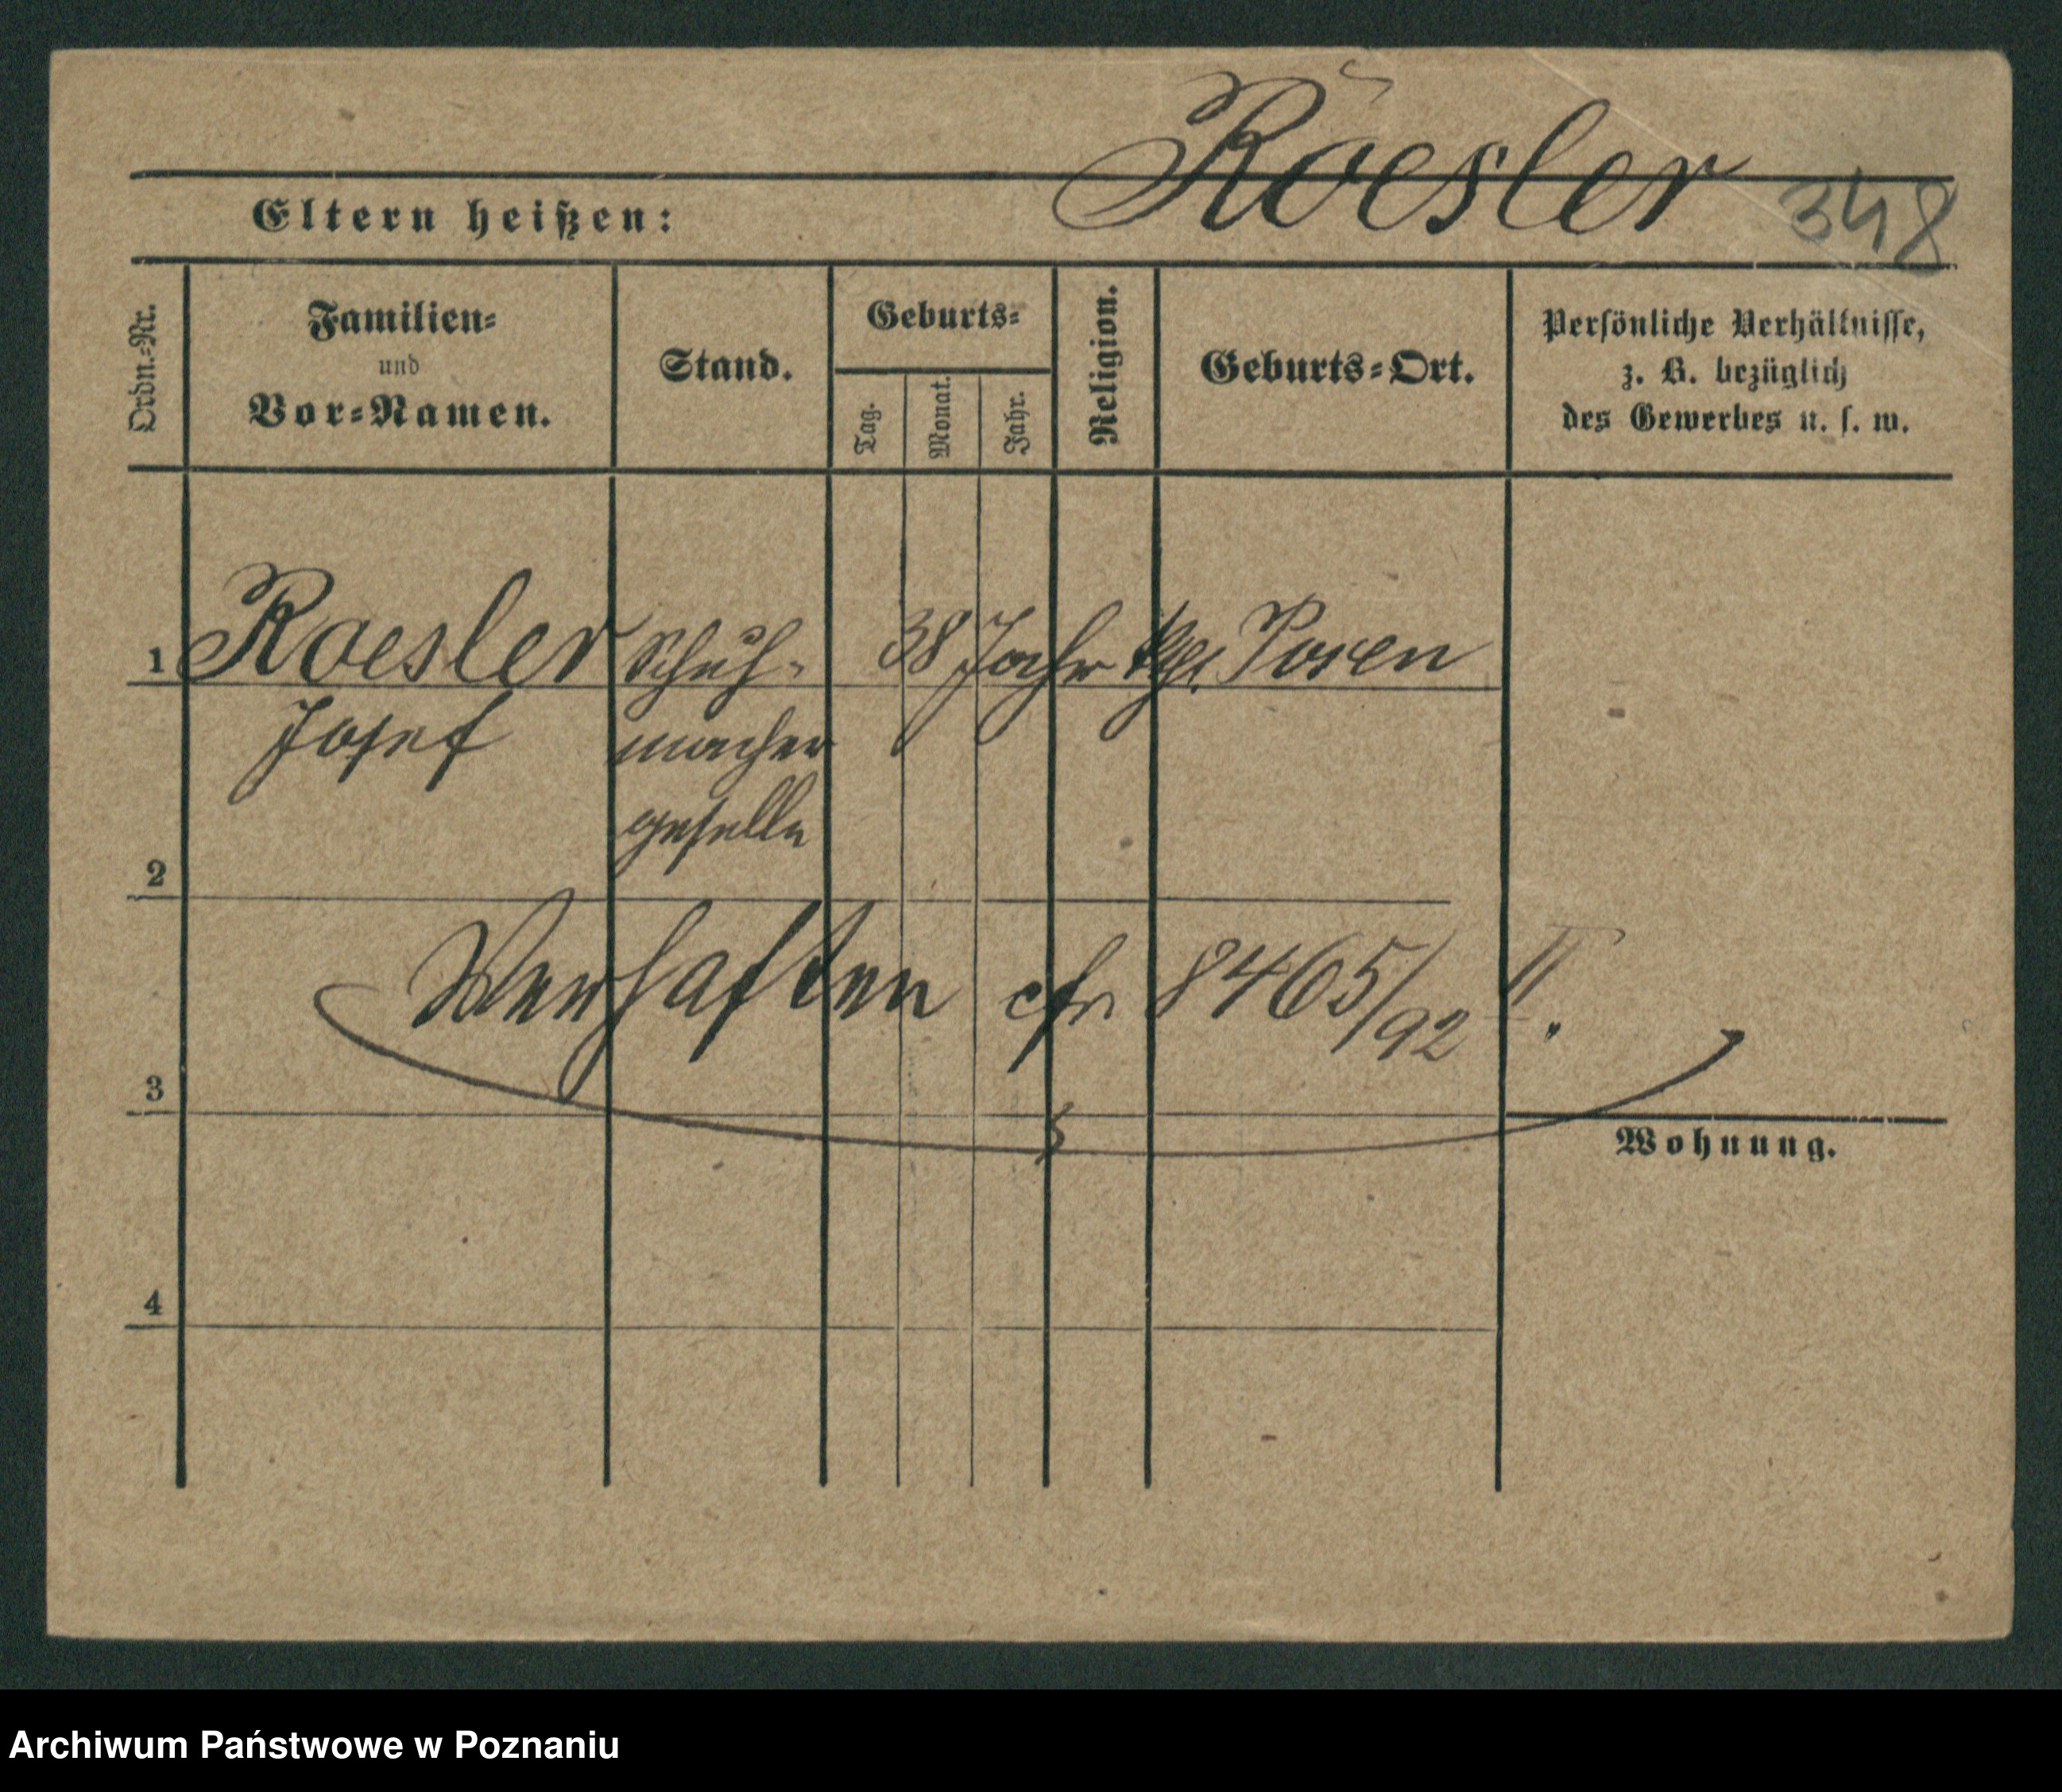 Roesler
348
Eltern heißen:
Ordn.-Nr.
Familien-
und
Vor-Namen.
Stand.
Geburts-
Tag.
Monat.
Jahr.
Religion.
Geburts-Ort.
Persönliche Verhältnisse,
z. B. bezüglich
des Gewerbes u. s. w.
1 Roesler Schuh- 38 Jahr Posen
Josef macher
geselle
2
Verhaften cfr 8465/92 II.
3
Wohnung.
4
Archiwum Państwowe w Poznaniu